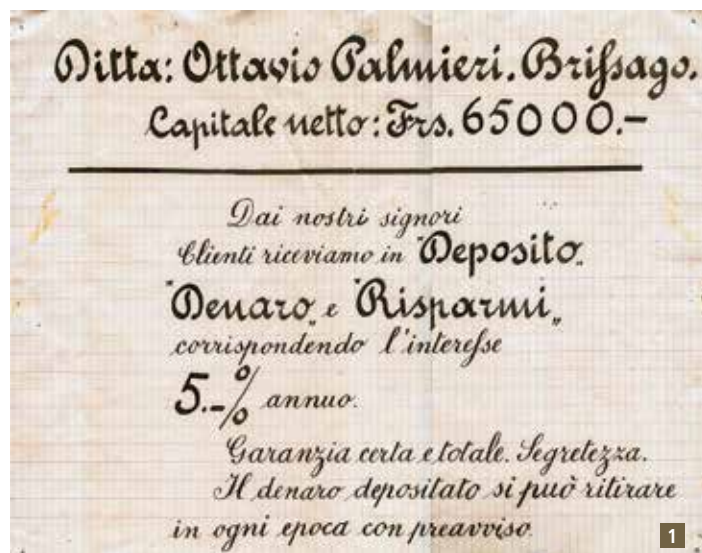 Ditta: Ottavio Palmieri. Briſsago.
Capitale netto: Frs. 65000.–
Dai nostri signori
Clienti riceviamo in "Deposito„
"Denaro„ e "Risparmi„
corrispondendo l'intereſse
5.-% annuo.
Garanzia certa e totale. Segretezza.
Il denaro depositato si può ritirare
in ogni epoca con preavviso.
1